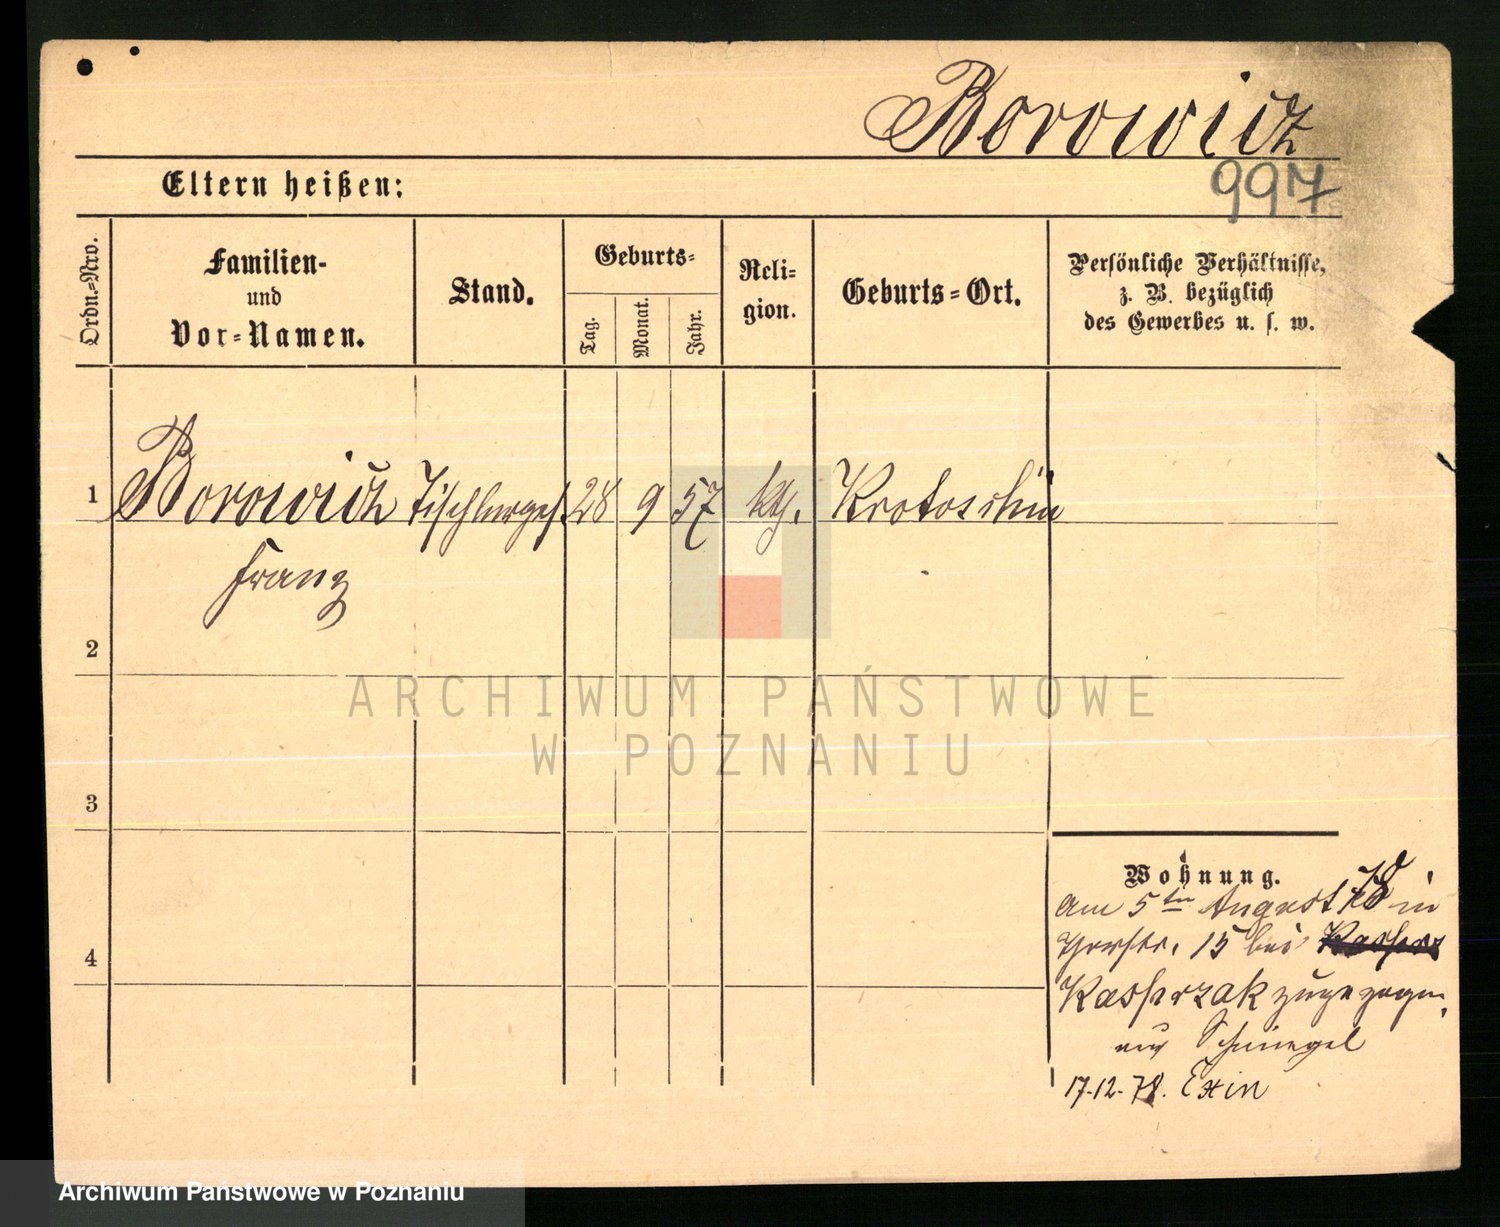 Borowicz
997
Eltern heißen:
Ordn.=Nro.
Familien-
und
Vor=Namen.
Stand.
Geburts=
Tag.
Monat.
Jahr.
Reli=
gion.
Geburts=Ort.
Persönliche Verhältnisse,
z. B. bezüglich
des Gewerbes u. s. w.
1 Borowicz Tischlerges. 28 9 57 kth. Krotoschin
Franz
2
ARCHIWUM PAŃSTWOWE
W POZNANIU
3
Wohnung.
am 5ten August 78 in
15 bei
4
Kasprzak zugezogen,
aus Schmiegel
17.12.78. Exin
Archiwum Państwowe w Poznaniu